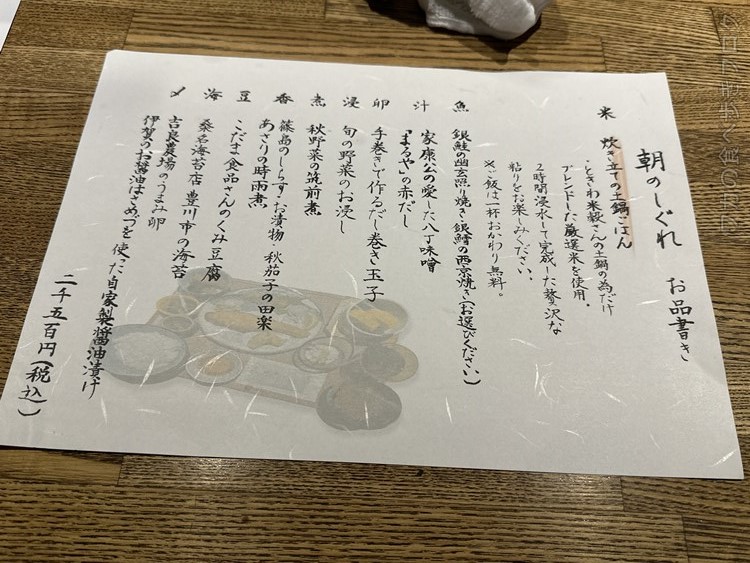 朝のしぐれ
お品書き
米
炊き立ての土鍋ごはん
・ときわ米穀さんの土鍋の為だけ
ブレンドした厳選米を使用。
2時間浸水して完成した贅沢な
粘りをお楽しみください。
※ご飯は一杯おかわり無料。
魚
銀鮭の幽玄焼き・銀鱈の西京焼き(お選びください)
汁
家康公の愛した八丁味噌
「まるや」の赤だし
卵
手巻きで作るだし巻き玉子
浸
旬の野菜のお浸し
煮
秋野菜の筑前煮
香
篠島のしらす・お漬物・秋茄子の田楽
あさりの時雨煮
豆
こだま食品さんのくみ豆腐
海
桑名海苔店 豊川市の海苔
〆
吉良農場のうまみ卵
伊賀のお醤油はさめづを使った自家製醤油漬け
二千五百円(税込)